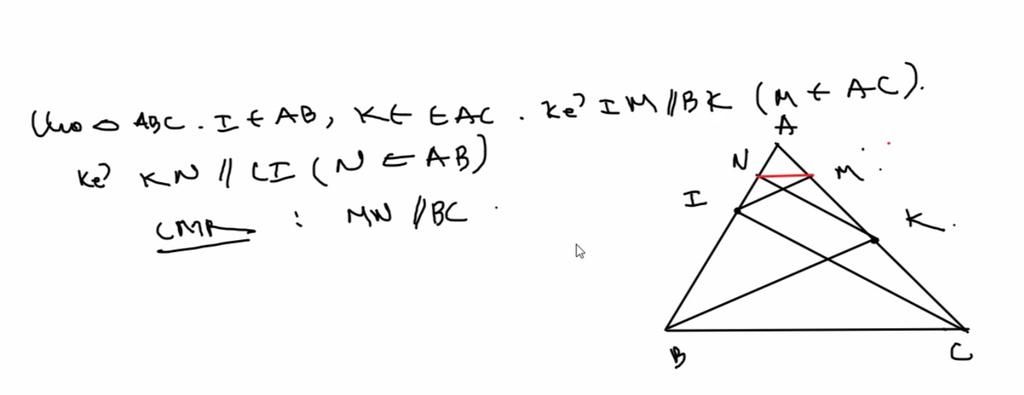 Cho △ ABC . I ∈ AB, K ∈ ∈ AC . Kẻ IM // BK (M ∈ AC).
Kẻ KN // CI (N ∈ AB)
CMR : MN // BC .
A
N
M
I
K
B
C